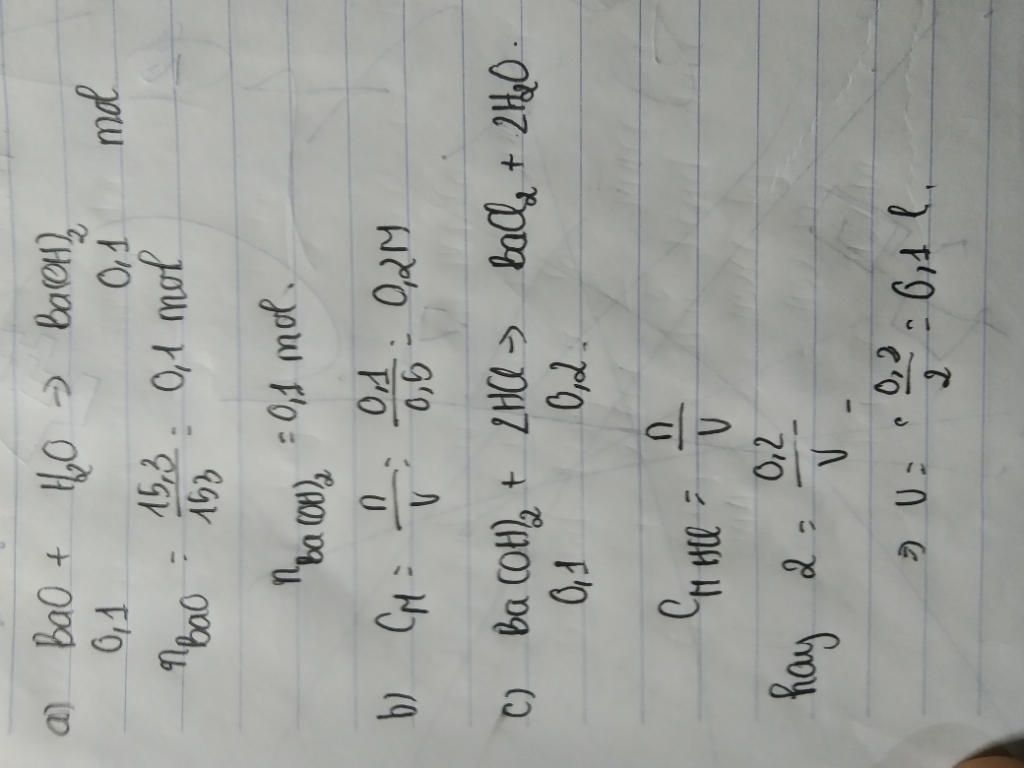 a) BaO + H₂O → Ba(OH)₂
0,1 0,1 mol
nBaO = 15,3/153 = 0,1 mol
nBa(OH)₂ = 0,1 mol.
b) CM = n/V = 0,1/0,5 = 0,2M
c) Ba(OH)₂ + 2HCl → BaCl₂ + 2H₂O.
0,1 0,2
CM HCl = n/V
hay 2 = 0,2/V
⇒ V = 0,2/2 = 0,1 l